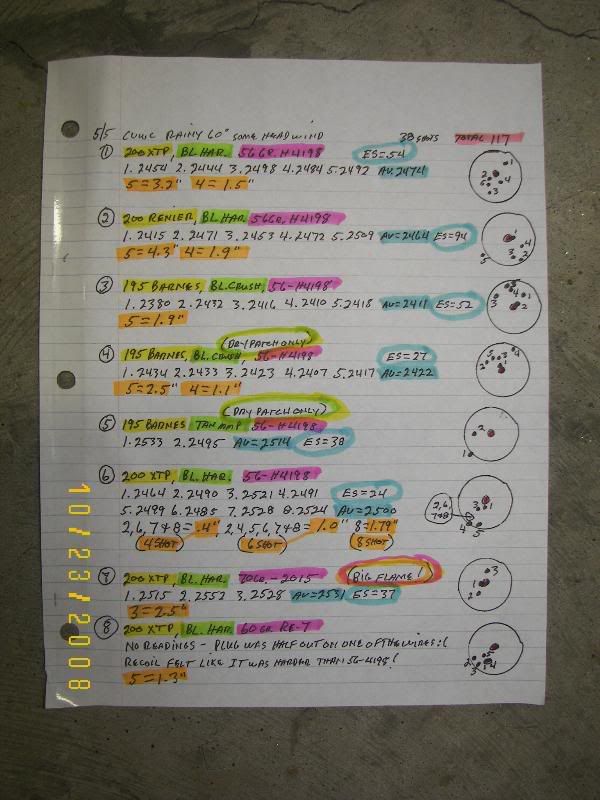 5/5 CUNIC RAINY 60° SOME HEADWIND 38 SHOTS TOTAL 117
① 200 XTP, BL.HAR. 56GR. H4198 ES=54
1. 2454 2. 2444 3. 2498 4. 2484 5. 2492 AV. 2474
5=3.2" 4=1.5"
② 200 RENIER, BL.HAR 56GR. H4198
1. 2415 2. 2471 3. 2453 4. 2472 5. 2509 AV=2464 ES=94
5=4.3" 4=1.9"
③ 195 BARNES, BL.CRUSH, 56-H4198
1. 2380 2. 2432 3. 2416 4. 2410 5. 2418 AV=2411 ES=52
5=1.9"
(DRY PATCH ONLY)
④ 195 BARNES, BL.CRUSH, 56-H4198 ES=27
1. 2434 2. 2433 3. 2423 4. 2407 5. 2417 AV=2422
5=2.5" 4=1.1"
(DRY PATCH ONLY)
⑤ 195 BARNES TAN MMP 56-H4198
1. 2533 2. 2495 AV=2514 ES=38
⑥ 200 XTP, BL.HAR. 56-H4198
1. 2464 2. 2490 3. 2521 4. 2491 ES=24
5. 2499 6. 2485 7. 2528 8. 2524 AV=2500
2,6,7+8=.4" 2,4,5,6,7+8=1.0" 8=1.79"
4 SHOT 6 SHOT 8 SHOT
⑦ 200 XTP, BL.HAR. 70GR.-2015 (BIG FLAME!)
1. 2515 2. 2552 3. 2528 AV=2531 ES=37
3=2.5"
⑧ 200 XTP, BL.HAR 60 GR RE-7
NO READINGS - PLUG WAS HALF OUT ON ONE OF THE WIRES :(
RECOIL FELT LIKE IT WAS HARDER THAN 56-4198!
5=1.3"
10/23/2008